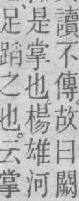 讀不傳故曰闕
是掌也楊雄河
足蹋之也云掌